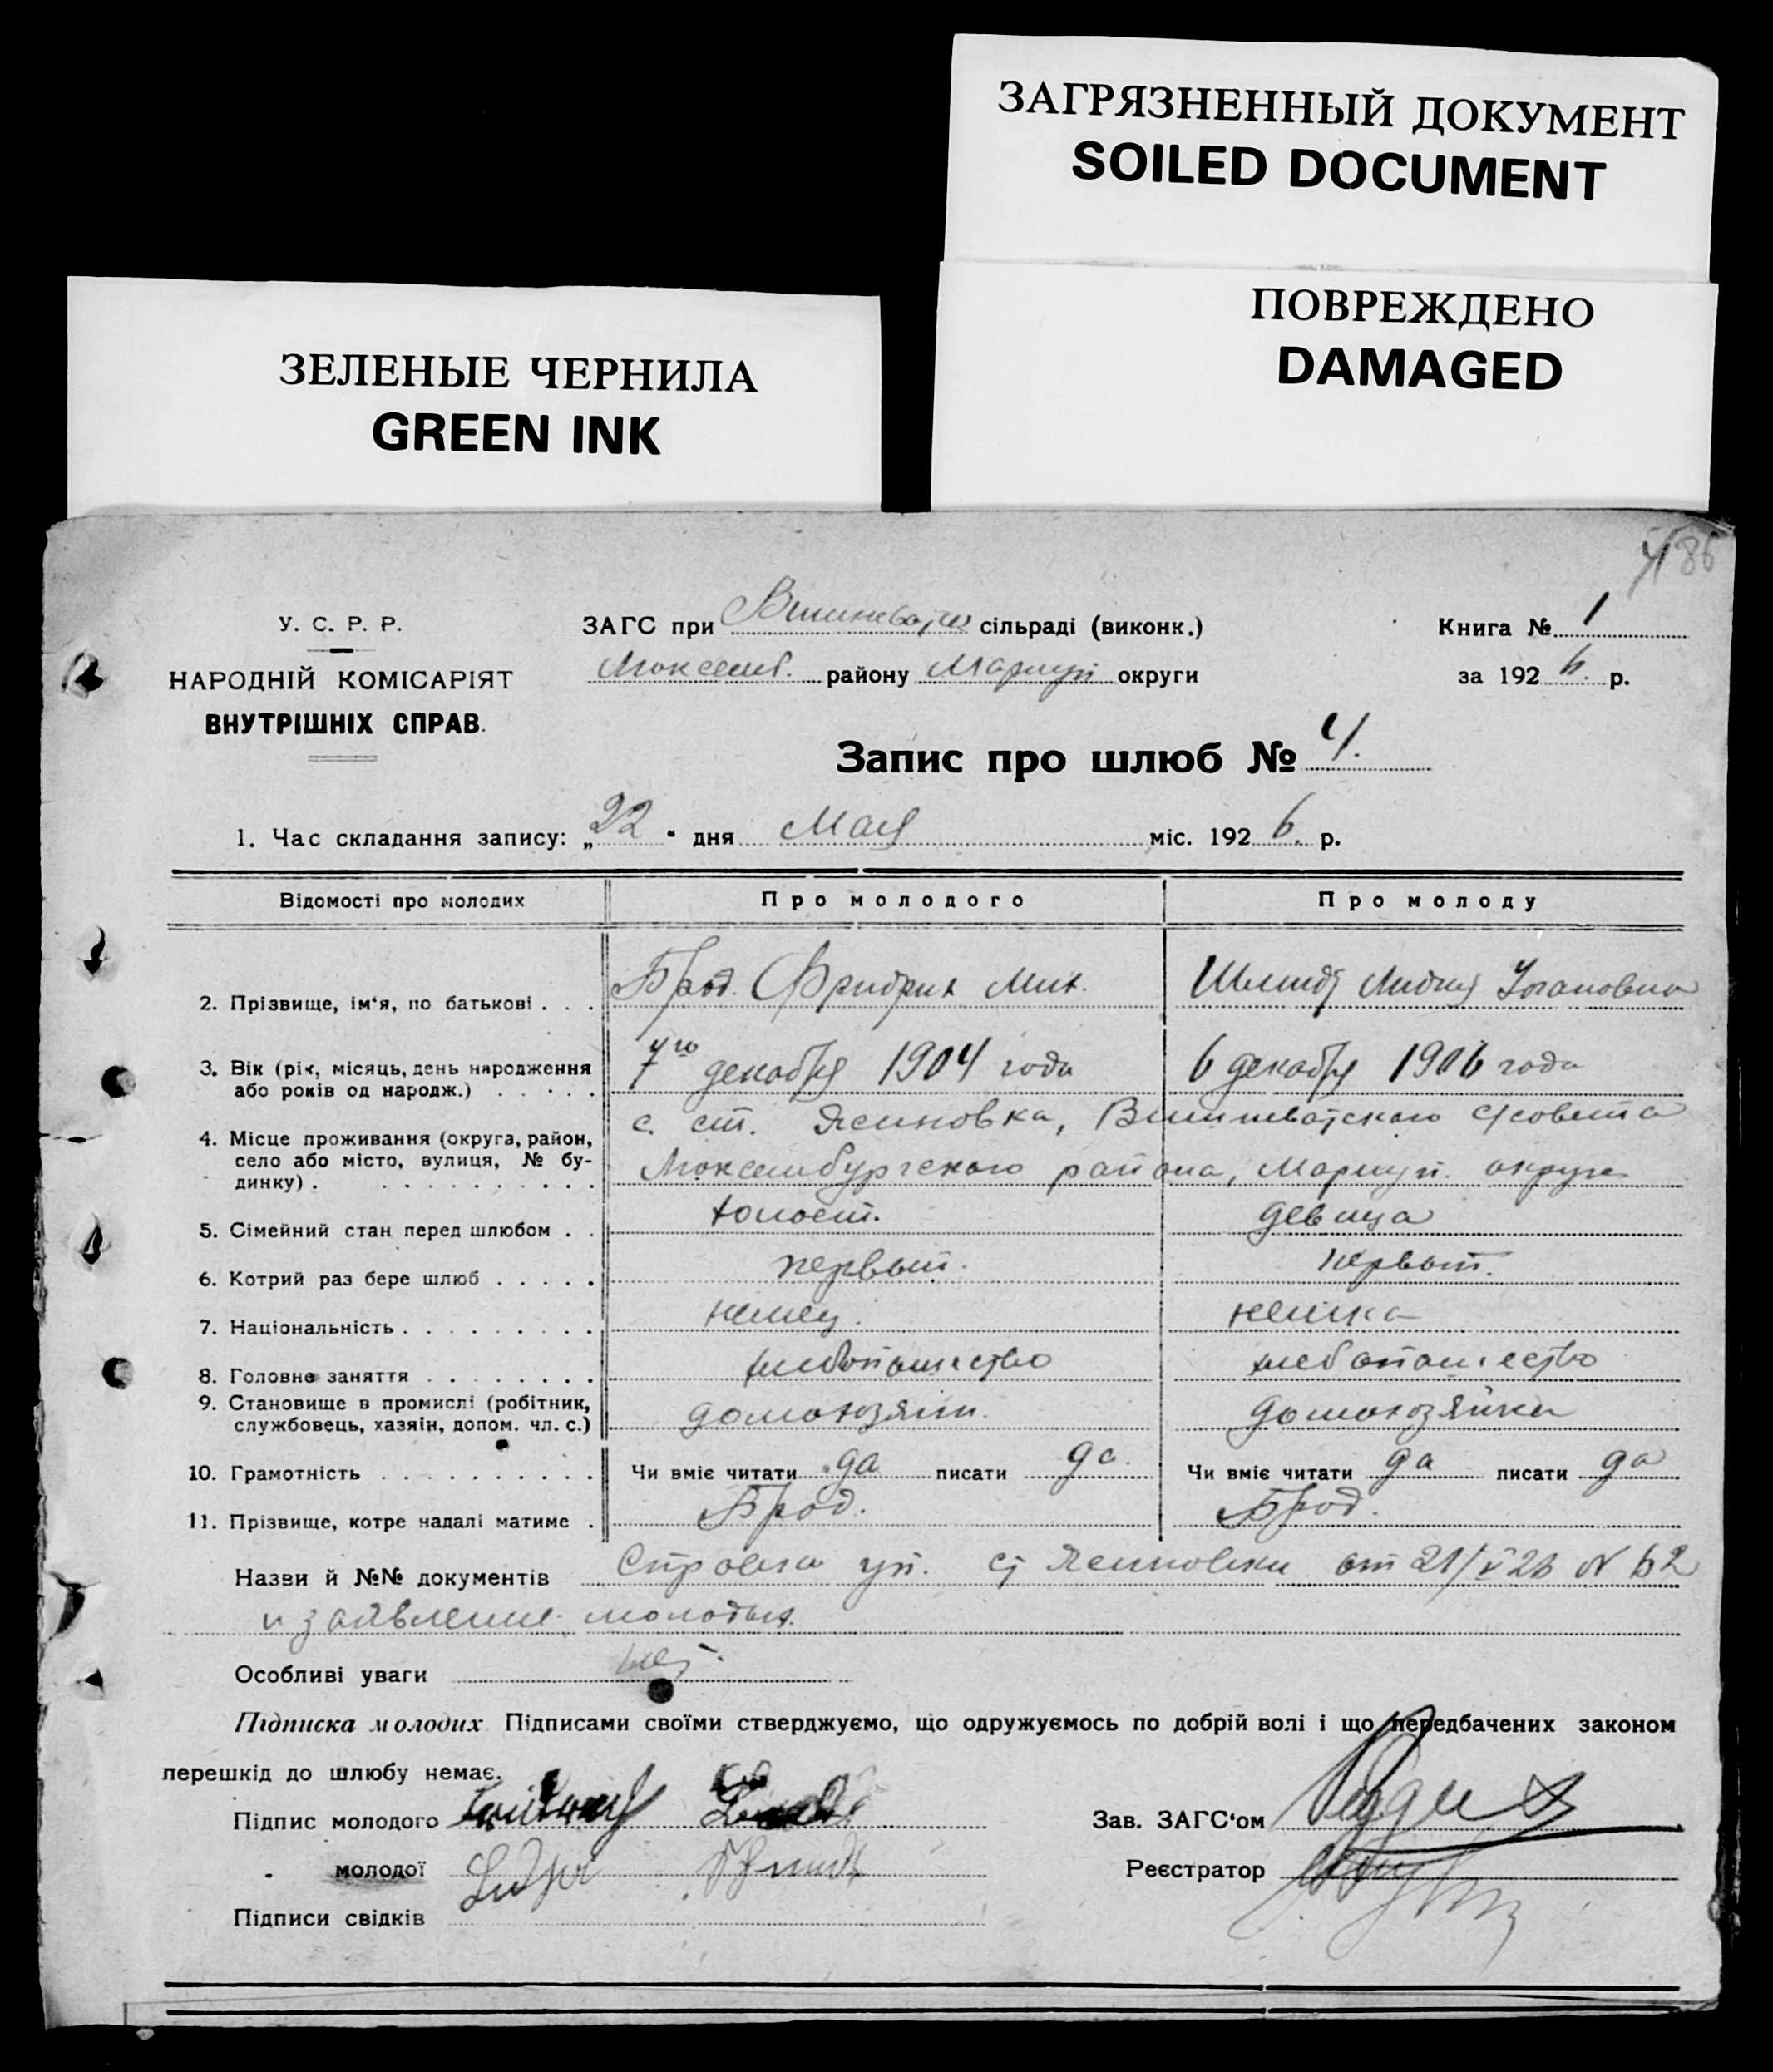 ЗАГРЯЗНЕННЫЙ ДОКУМЕНТ
SOILED DOCUMENT
ПОВРЕЖДЕНО
DAMAGED
ЗЕЛЕНЫЕ ЧЕРНИЛА
GREEN INK
86
У. С. Р. Р.
НАРОДНІЙ КОМІСАРІЯТ
ВНУТРІШНІХ СПРАВ.
ЗАГС при сільраді (виконк.)
району Мариуп округи
Книга № 1
за 1926. р.
Запис про шлюб № 4.
1. Час складання запису: „22" дня Мая міс. 1926. р.
Відомості про молодих Про молодого Про молоду
2. Прізвище, ім'я, по батькові . . . Брод. Фридрих Мих. Шмидт Лидия Иогановна
3. Вік (рік, місяць, день народження 7го декабря 1904 года 6 декабря 1906 года
або років од народж.) . . . . .
4. Місце проживання (округа, район, с. ст. Ясиновка, Вишневатского с/совета
село або місто, вулиця, № бу-
динку) . . . . . . . . . . района, Мариуп. округи
5. Сімейний стан перед шлюбом . . холост. девица
6. Котрий раз бере шлюб . . . . . первый. первый.
7. Національність . . . . . . . . . немец. немка
8. Головне заняття . . . . . . . . хлебопашество хлебопашество
9. Становище в промислі (робітник,
службовець, хазяїн, допом. чл. с.) домохозяин. домохозяйка
10. Грамотність . . . . . . . . . . Чи вміє читати да писати да. Чи вміє читати да писати да
11. Прізвище, котре надалі матиме . Брод. Брод.
Назви й №№ документів Справка уп. Ясиновки от 21/V 26 N 62
и заявление молодых.
Особливі уваги нет.
Підписка молодих Підписами своїми стверджуємо, що одружуємось по добрій волі і що передбачених законом
перешкід до шлюбу немає.
Підпис молодого
Зав. ЗАГС'ом
" молодої
Реєстратор
Підписи свідків